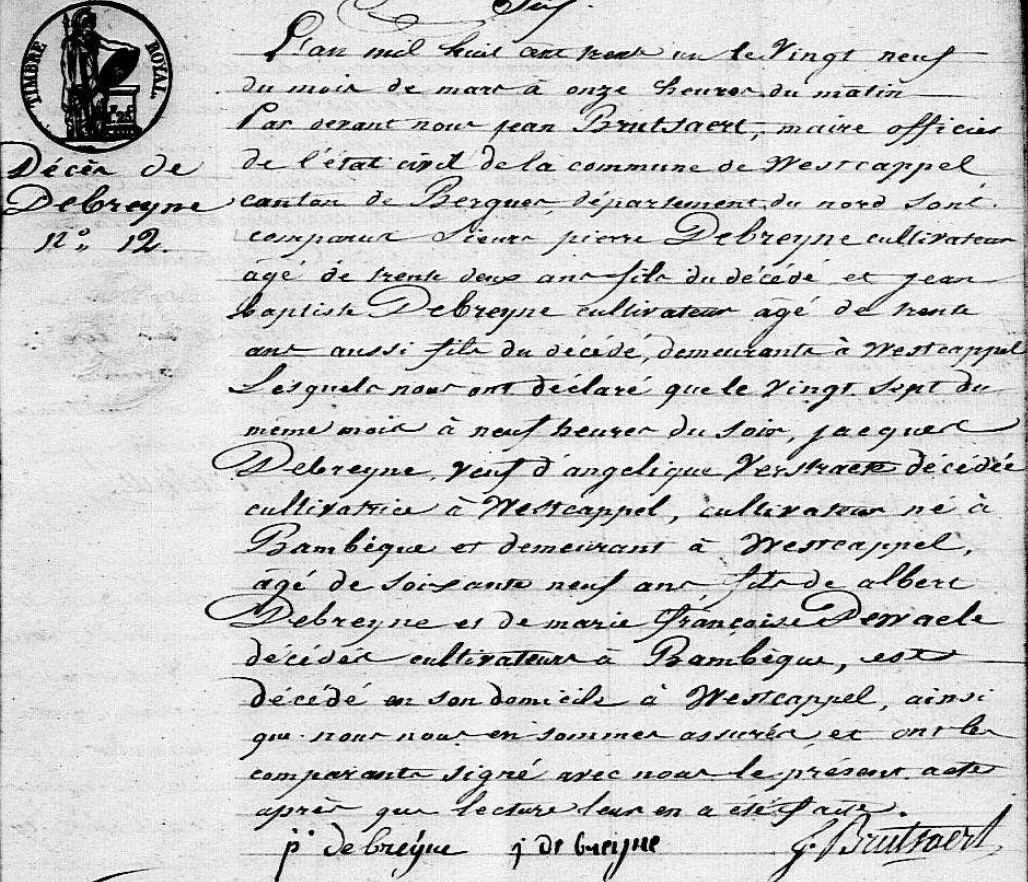 TIMBRE ROYAL
Décès de
Debreyne
n.° 12.
L'an mil huit cent trente un le Vingt neuf
du mois de mars à onze heures du matin
Par devant nous jean Brutsaert, maire officier
de l'état civil de la commune de Westcappel
canton de Bergues, département du nord sont
comparus Sieurs pierre Debreyne cultivateur
âgé de trente deux ans fils du décédé et jean
baptiste Debreyne cultivateur âgé de trente
ans aussi fils du décédé, demeurants à Westcappel
Lesquels nous ont déclaré que le vingt sept du
même mois à neuf heures du soir, jacques
Debreyne, veuf d'angelique Verstraete décédée
cultivatrice à Westcappel, cultivateur né à
Bambèque et demeurant à Westcappel,
âgé de soixante neuf ans, fils de albert
Debreyne et de marie françoise Dewaele
décédés cultivateurs à Bambèque, est
décédé en son domicile à Westcappel, ainsi
que nous nous en sommes assurés et ont les
comparants signé avec nous le présent acte
après que lecture leur en a été faite.
p.. de breÿne j de breijne J. Brutsaert